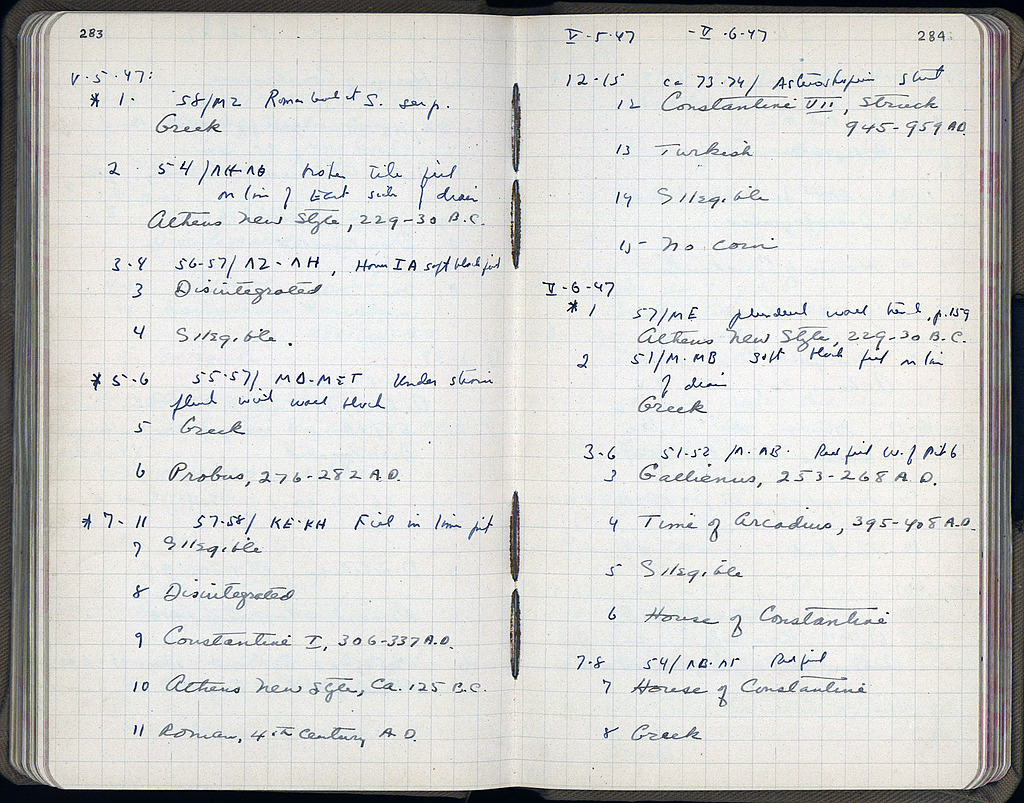 283
V·5·47:
* 1. 58/ΜΖ Roman S.
Greek
2 54/ΛΗ-ΛΘ tile fill
in line of East side of drain
Athens New Style, 229-30 B.C.
3-4 56-57/ΛΖ-ΛΗ, House I A soft black fill
3 Disintegrated
4 Illegible.
* 5-6 55-57/ ΜΔ-ΜΣΤ Under
5 Greek
6 Probus, 276-282 A.D.
* 7-11 57-58/ ΚΕ-ΚΗ Fill in lime pit
7 Illegible
8 Disintegrated
9 Constantine I, 306-337 A.D.
10 Athens New Style, Ca. 125 B.C.
11 Roman, 4th Century A.D.
V·5·47 - V·6·47
284
12-15 ca 73-74/
12 Constantine VII, struck
945-959 A.D.
13 Turkish
14 Illegible
15- No coin
V-6-47
* 1 57/ΜΕ, p.159
Athens New Style, 229-30 B.C.
2 51/Μ-ΜΒ soft black fill in line
of drain
Greek
3-6 51-52 /Λ-ΛΒ. Red fill W. of Pit 6
3 Gallienus, 253-268 A.D.
4 Time of Arcadius, 395-408 A.D.
5 Illegible
6 House of Constantine
7-8 54/ Red fill
7 House of Constantine
8 Greek